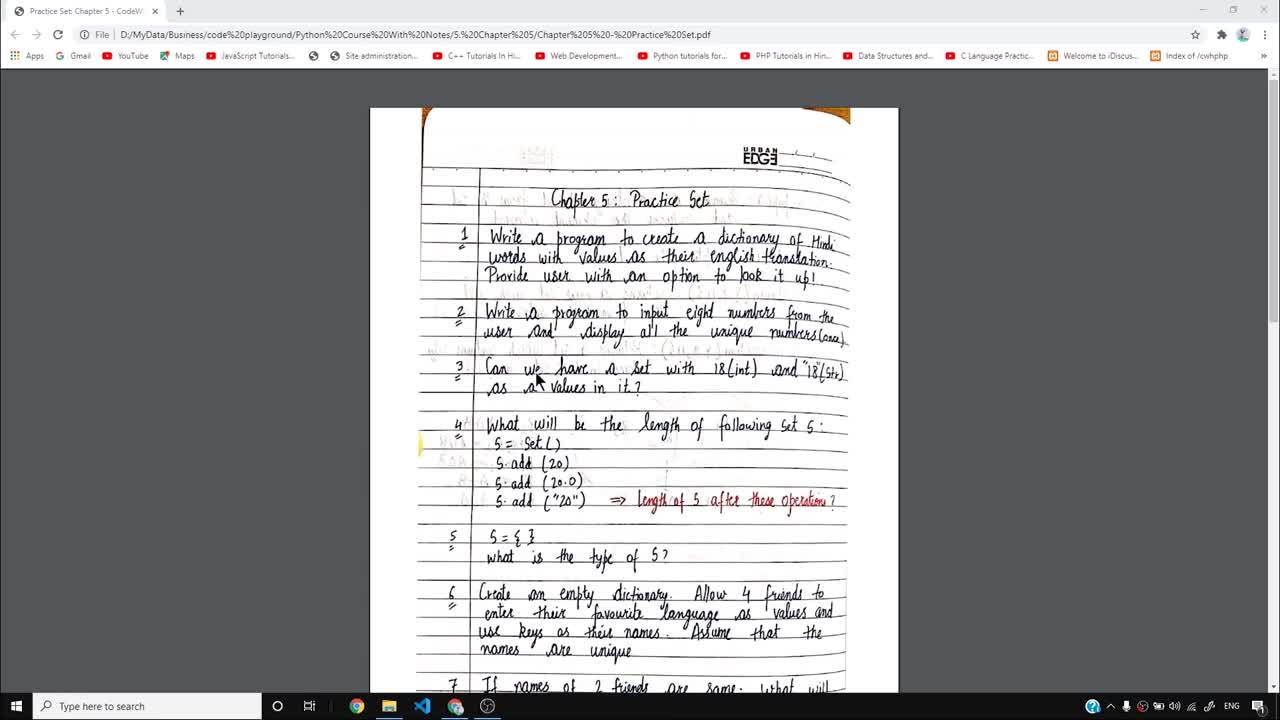 Practice Set: Chapter 5 - CodeW
File D:/MyData/Business/code%20playground/Python%20Course%20With%20Notes/5.%20Chapter%205/Chapter%205%20-%20Practice%20Set.pdf
Apps Gmail YouTube Maps JavaScript Tutorials... Site administration... C++ Tutorials In Hi... Web Development... Python tutorials for... PHP Tutorials in Hin... Data Structures and... C Language Practic... Welcome to iDiscus... Index of /cwhphp »
URBAN
EDGE
Chapter 5: Practice Set
1 Write a program to create a dictionary of Hindi
words with values as their english translation.
Provide user with an option to look it up!
2 Write a program to input eight numbers from the
user and display all the unique numbers (once)
3 Can we have a set with 18(int) and "18"(str)
as a values in it?
4 What will be the length of following set S:
S = Set()
S.add (20)
S.add (20.0)
S.add ("20") ⇒ length of S after these operations?
5 S = { }
what is the type of S?
6 Create an empty dictionary. Allow 4 friends to
enter their favourite language as values and
use keys as their names. Assume that the
names are unique
7 If names of 2 friends are same. what will
Type here to search
ENG